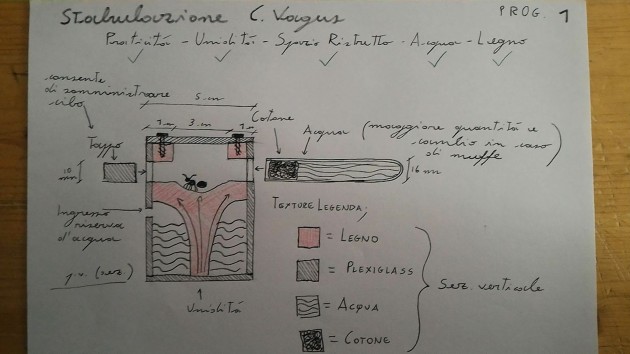 Stabulazione C. Vagus
PROG. 1
Praticità - Umidità - Spazio Ristretto - Acqua - Legno
consente
di somministrare
cibo
5 cm
1 cm
3 cm
1 cm
Cotone
Acqua (maggiore quantità e
cambio in caso
di muffe)
Tappo
10
mm
16 mm
Ingresso
riserva
d'acqua
Umidità
TEXTURE LEGENDA;
= LEGNO
= PLEXIGLASS
= ACQUA
= COTONE
Sez. verticale